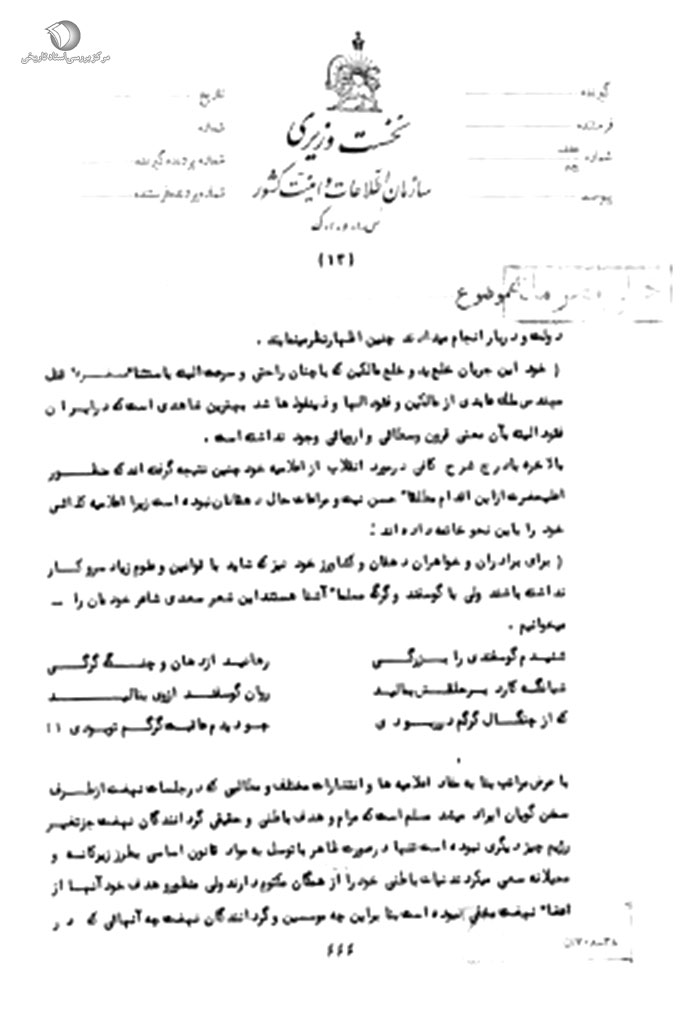 مرکز بررسی اسناد تاریخی
گیرنده
فرستنده
شماره
پیوست
تاریخ
شماره
شماره پرونده گیرنده
شماره پرونده فرستنده
نخست وزیری
سازمان اطلاعات و امنیت کشور
س.ا.و.ا.ک
(۱۳)
موضوع
دولت و دربار انجام میدادند چنین اظهارنظر مینمایند .
( خود این جریان خلع ید و خلع مالکین که با چنان راحتی و سرعت البته با استثناء قتل
مهندس ملک عابدی از مالکین و فئودالها و ذینفوذها شد بهترین شاهدی است که در ایران
فئودالیته بآن معنی قرون وسطائی و اروپائی وجود نداشته است .
بالاخره با درج شرح کافی در مورد انقلاب از اعلامیه خود چنین نتیجه گرفته اند که منظور
اعلیحضرت از این اقدام مطلقاً حسن نیت و مراعات حال دهقانان نبوده است زیرا اعلامیه کذائی
خود را باین نحو خاتمه داده اند :
( برای برادران و خواهران دهقان و کشاورز خود نیز که شاید با قوانین و علوم زیاد سر و کار
نداشته باشند ولی با گوسفند و گرگ مسلماً آشنا هستند این شعر سعدی شاعر خودمان را ــ
میخوانیم .
شنیدم گوسفندی را بزرگی رهانید از دهان و چنگ گرگی
شبانگه کارد بر حلقش بمالید روان گوسفند از وی بنالید
که از چنگال گرگم در ربودی چو دیدم عاقبت گرگم تو بودی !!
با عرض مراتب بنا به مفاد اعلامیه ها و انتشارات مختلف و مطالبی که در جلسات نهضت از طرف
سخن گویان ایراد میشد مسلم است که مرام و هدف باطنی و حقیقی گردانندگان نهضت جز تغییر
رژیم چیز دیگری نبوده است تنها در صورت ظاهر با توسل به مواد قانون اساسی بطرز زیرکانه و
محیلانه سعی میکردند نیات باطنی خود را از همگان مکتوم دارند ولی منظور و هدف خود آنها از
اعضاء نهضت مخفی نبوده است بنا براین چه موسسین و گردانندگان نهضت چه آنهائی که در